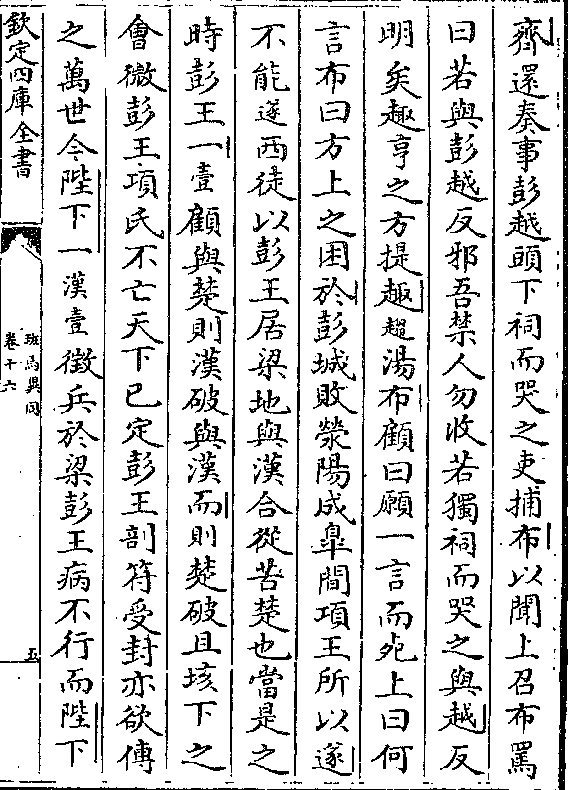 齊還奏事彭越頭下祠而哭之吏捕布以聞上召布罵
曰若與彭越反邪吾禁人勿收若獨祠而哭之與越反
明矣趣亨之方提趣趨湯布顧曰願一言而死上曰何
言布曰方上之困於彭城敗滎陽成臯間項王所以遂
不能遂西徒以彭王居梁地與漢合從苦楚也當是之
時彭王一壹顧與楚則漢破與漢而則楚破且垓下之
會微彭王項氏不亡天下已定彭王剖符受封亦欲傳
之萬世今陛下一漢壹徵兵於梁彭王病不行而陛下
欽定四庫全書
班馬異同
卷十六
五